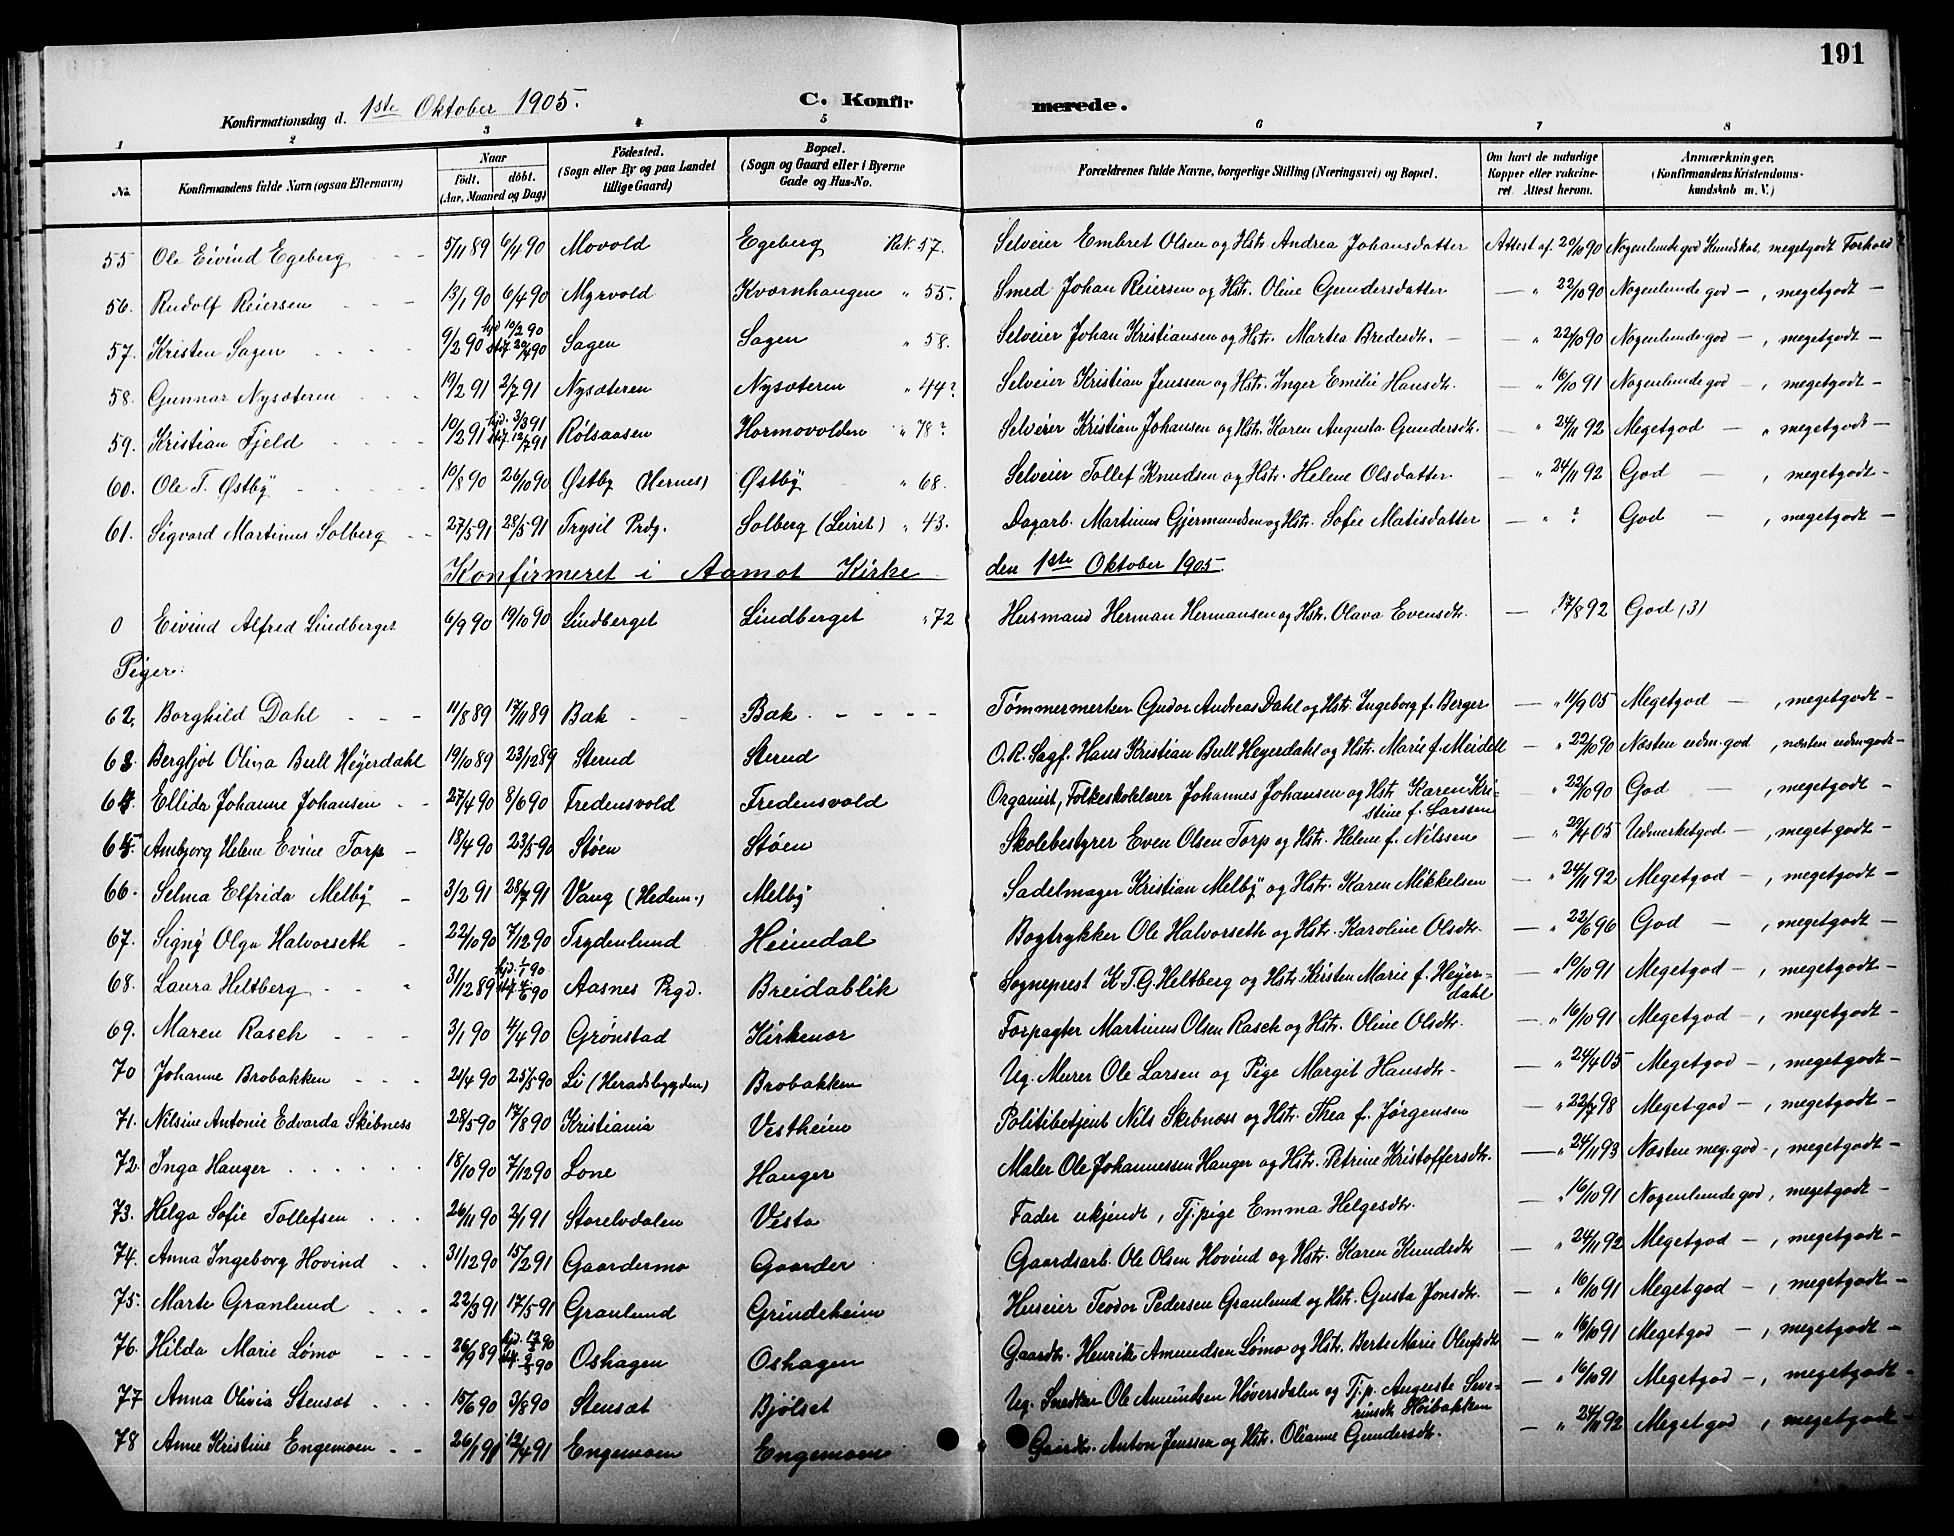 191
Konfirmationsdag d. 1ste Oktober 1905. C. Konfirmerede.
1 2 3 4 5 6 7 8
No. Konfirmandens fulde Navn (ogsaa Efternavn) Naar født. døbt. (Aar, Maaned og Dag) Fødested. (Sogn eller By og paa Landet tillige Gaard) Bopæl. (Sogn og Gaard eller i Byerne Gade og Hus-No. Forældrenes fulde Navne, borgerlige Stilling (Næringsvei) og Bopæl. Om havt de naturlige Kopper eller vakcineret. Attest herom. Anmærkninger. (Konfirmandens Kristendomskundskab m. V.)
55 Ole Eivind Egeberg 5/11 89 6/4 90 Movold Egeberg Rek. 57. Selveier Embret Olsen og Hstr. Andrea Johansdatter Attest af 20/10 90 Nogenlunde god Kundskab, megetgodt Forhold
56. Rudolf Reiersen 13/1 90 6/4 90 Myrvold Kvernhaugen " 55. Smed Johan Reiersen og Hstr. Oline Gundersdatter — " 22/10 90 Nogenlunde god —, megetgodt —
57. Kristen Sagen 9/2 90 hjd 10/2 90 stf. 20/4 90 Sagen Sagen " 58. Selveier Johan Kristiansen og Hstr. Martea Bredesdtr. — " 22/10 90 Nogenlunde god —, megetgodt —
58. Gunnar Nysæteren 19/2 91 2/7 91 Nysæteren Nysæteren " 44? Selveier Kristian Jenssen og Hstr. Inger Emilie Hansdtr. — " 16/10 91 Nogenlunde god —, megetgodt —
59. Kristian Fjeld 10/2 91 hjd. 3/3 91 stf. 12/7 91 Rölsaasen Hormovolden " 78? Selveier Kristian Johansen og Hstr. Karen Augusta Gundersdtr. " 24/11 92 Megetgod —, megetgodt —
60. Ole T. Østby 10/8 90 26/10 90 Østby (Hernes) Østby " 68. Selveier Tollef Knudsen og Hstr. Helene Olsdatter — " 24/11 92 God —, megetgodt —
61. Sigvard Martinus Solberg 27/5 91 28/5 91 Trysil Prdg. Solberg (Leiret) " 43. Dagarb. Martinus Gjermundsen og Hstr. Sofie Matisdatter — " ? God —, megetgodt —
Konfirmeret i Aamot Kirke den 1ste Oktober 1905.
0 Eivind Alfred Lindberget 6/9 90 19/10 90 Lindberget Lindberget " 72 Husmand Herman Hermansen og Hstr. Olava Evensdtr. — " 17/8 92 God (3)
Piger:
62. Borghild Dahl 11/8 89 17/11 89 Bæk Bæk Tømmermerker Gudor Andreas Dahl og Hstr. Ingeborg f. Berger — " 11/9 05 Megetgod —, megetgodt —
63. Bergljot Olina Bull Heyerdahl 19/10 89 23/12 89 Sterud Sterud O.R. Sagf. Hans Kristian Bull Heyerdahl og Hstr. Marie f. Meidell — " 22/10 90 Næsten udm. god, næsten udm. godt —
64. Ellida Johanne Johansen 27/4 90 8/6 90 Fredensvold Fredensvold Organist, Folkeskolelærer Johannes Johansen og Hstr. Karen Kristine f. Larssen " 22/10 90 God —, megetgodt —
65. Ambjørg Helene Evine Torp 18/4 90 23/5 90 Støen Støen Skolebestyrer Even Olsen Torp og Hstr. Helene f. Nilssen " 29/4 05 Udmerketgod —, megetgodt —
66. Selma Elfrida Melby 3/2 91 28/7 91 Vang (Hedem.) Melby Sadelmager Kristian Melby og Hstr. Karen Mikkelsen — " 24/11 92 Megetgod —, megetgodt —
67. Signy Olga Halvorseth 22/10 90 7/12 90 Frydenlund Heimdal Bogtrykker Ole Halvorseth og Hstr. Karoline Olsdtr. — " 22/6 96 God —, megetgodt —
68. Laura Heltberg 31/12 89 hjd. 1/1 90 stf. 4/6 90 Aasnes Prgd. Breidablik Sogneprest K.T.G. Heltberg og Hstr. Kristen Marie f. Heyerdahl — " 10/10 91 Megetgod —, megetgodt —
69. Maren Rasch 3/1 90 4/4 90 Grønstad Kirkenær Forpagter Martinus Olsen Rasch og Hstr. Oline Olsdtr. — " 16/10 91 Megetgod —, megetgodt —
70 Johanne Brobakken 21/4 90 25/5 90 Li (Heradsbygden) Brobakken Ug. Murer Ole Larsen og Pige Margit Hansdtr. — " 24/4 05 Megetgod —, megetgodt —
71. Nilsine Antonie Edvarda Skibness 28/5 90 17/8 90 Kristiania Vestheim Politibetjent Nils Skibnæss og Hstr. Thea f. Jørgensen — " 22/7 98 Megetgod —, megetgodt —
72. Inga Hanger 18/10 90 7/12 90 Lone Hanger Maler Ole Johannessen Hanger og Hstr. Petrine Kristoffersdtr. — " 24/11 93 Næsten meg. god —, megetgodt —
73. Helga Sofie Tollefsen 26/11 90 2/1 91 Storelvdalen Vesta Fader ukjendt, Tj. pige Emma Helgesdtr. — " 16/10 91 Nogenlunde god, megetgodt —
74. Anna Ingeborg Hovind 31/12 90 15/2 91 Gaardermo Gaarder Gaardsarb. Ole Olsen Hovind og Hstr. Karen Knudsdtr — " 24/11 92 Megetgod —, megetgodt —
75. Marte Granlund 22/3 91 17/5 91 Granlund Grindeheim Huseier Teodor Pedersen Granlund og Hstr. Gusta Jonsdtr. — " 16/10 91 Megetgod —, megetgodt —
76. Hilda Marie Lømo 26/9 89 hjd. stf. 90 Oshagen Oshagen Gaardbr. Henrik Amundsen Lømo og Hstr. Berte Marie — " 16/10 91 Megetgod —, megetgodt —
77 Anna Olivia Stensæt 15/6 90 3/8 90 Stensæt Bjølset Ug. Snedker Ole Amundsen Høversdalen og Tj.p. Auguste Severinsdtr Höibakken — " 16/10 91 Megetgod —, megetgodt —
78 Anne Kristine Engemoen 26/1 91 12/4 91 Engemoen Engemoen Gaardbr. Anton Jenssen og Hstr. Olianne Gundersdtr. — " 24/11 92 Megetgod —, megetgodt —